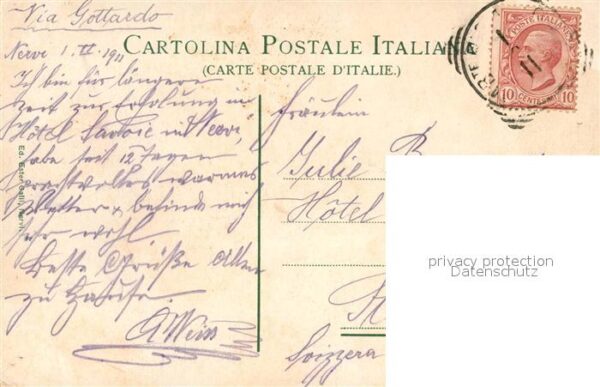 Via Gottardo
Nervi 1. II. 1911
CARTOLINA POSTALE ITALIANA
(CARTE POSTALE D'ITALIE.)
Ich bin für längere
Zeit zur Erholung in
Hôtel Savoie in Nervi,
habe seit 12 Tagen
prachtvolles warmes
Wetter & befinde mich
sehr wohl
Beste Grüße Allen
zu Hause.
A Weiss
POSTE ITALIANE
10 CENTESIMI 10
Fräulein
Julie B
Hôtel
Svizzera
privacy protection
Datenschutz